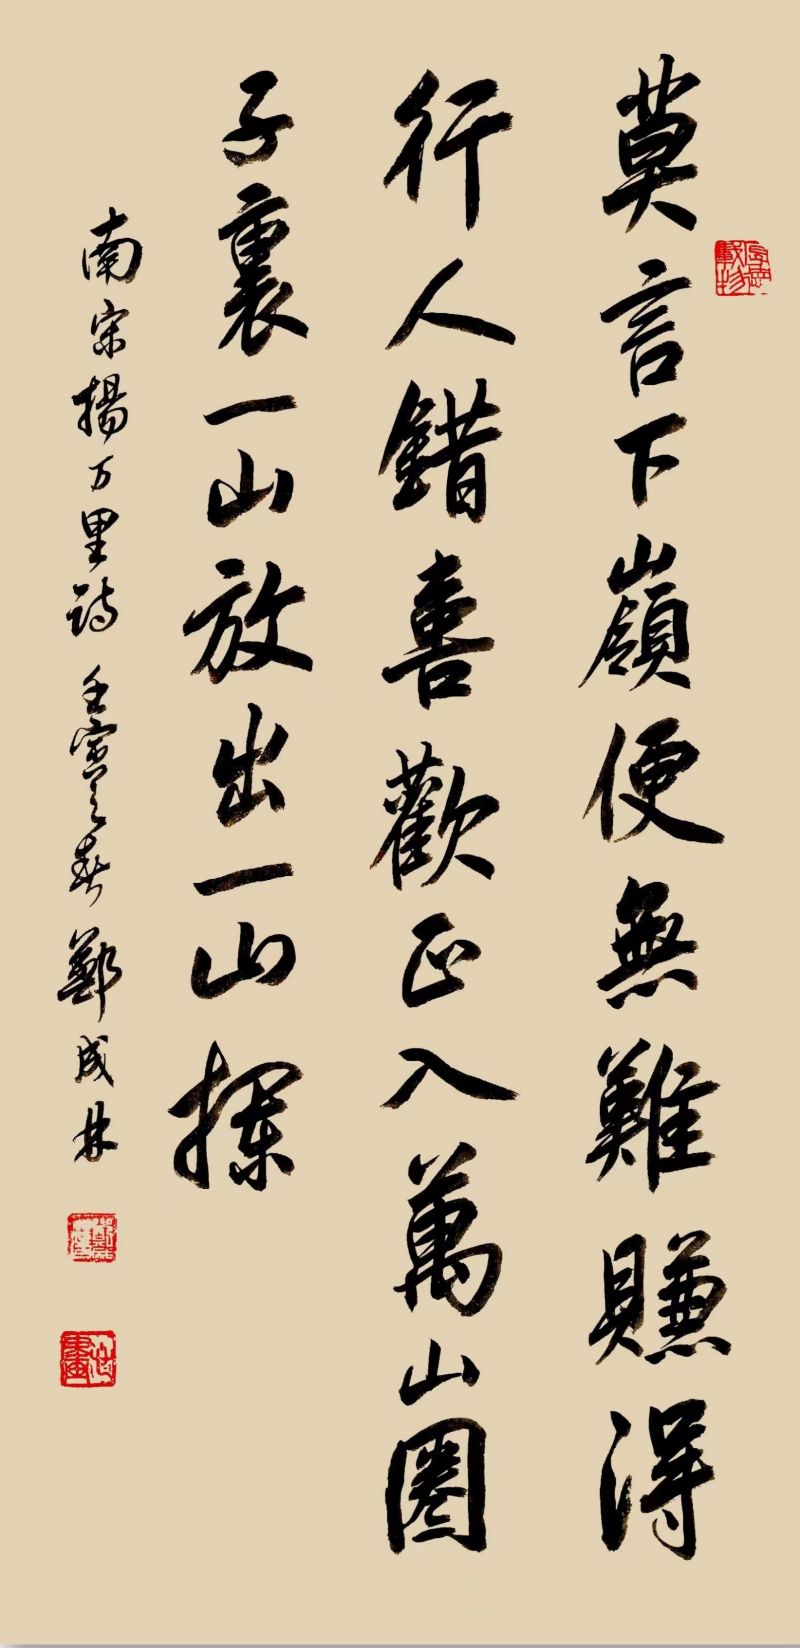 莫言下嶺便無難賺得
行人錯喜歡正入萬山圈
子裏一山放出一山攔
南宋揚万里詩 壬寅之春 鄭成林
厚德載物